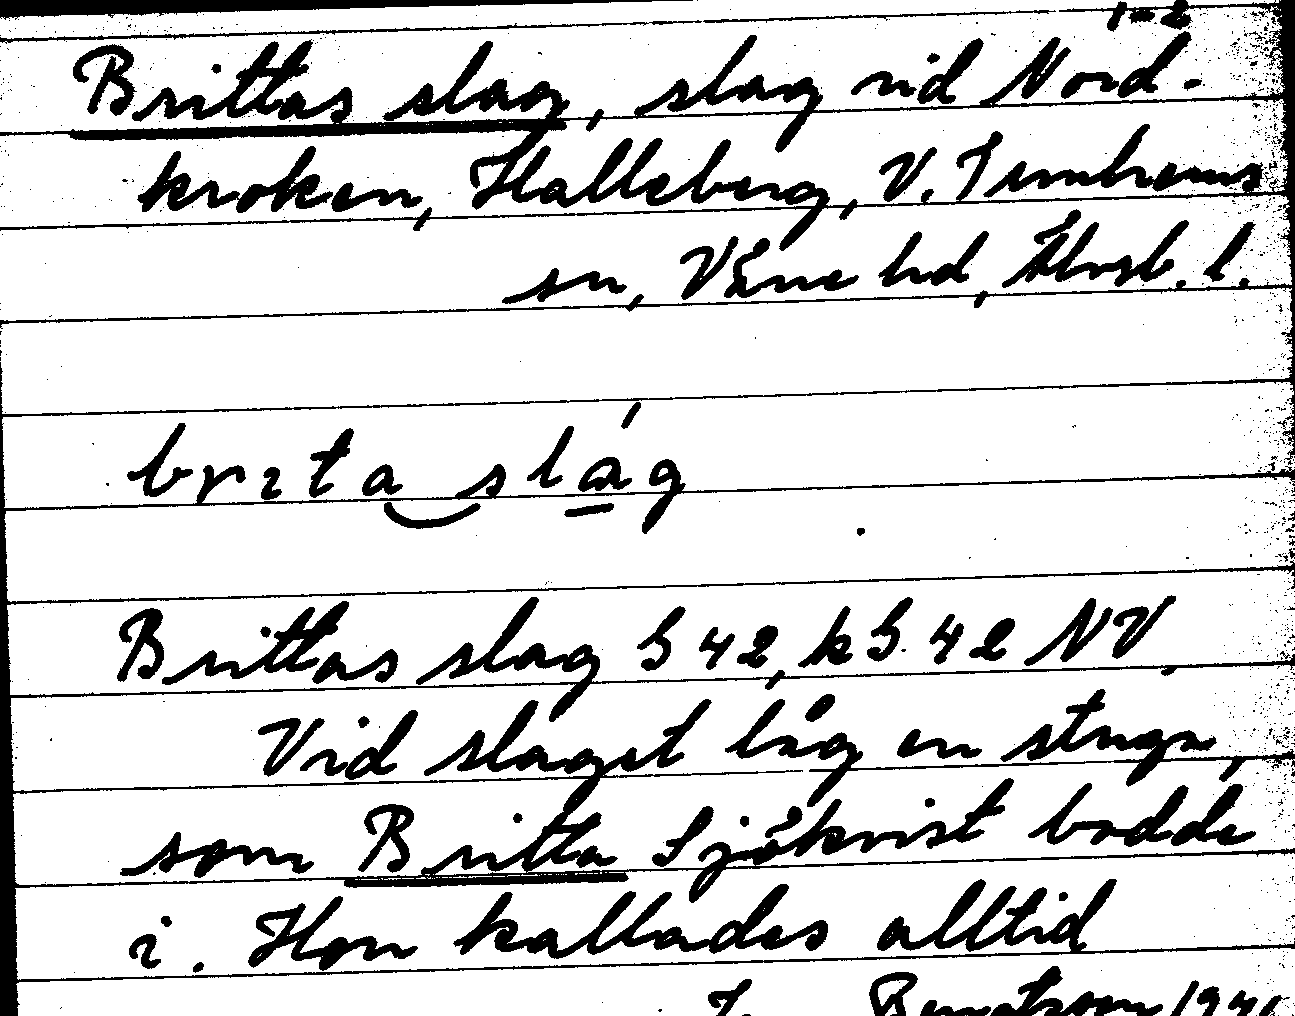 1-2
Brittas slag, slag vid Nord-
kroken, Halleberg, V. Tunhems
sn, Väne hd, Älvsb. l.
brıta slág
Brittas slag S 42, k S 42 NV.
Vid slaget låg en stuga,
som Britta Sjökvist bodde
i. Hon kallades alltid